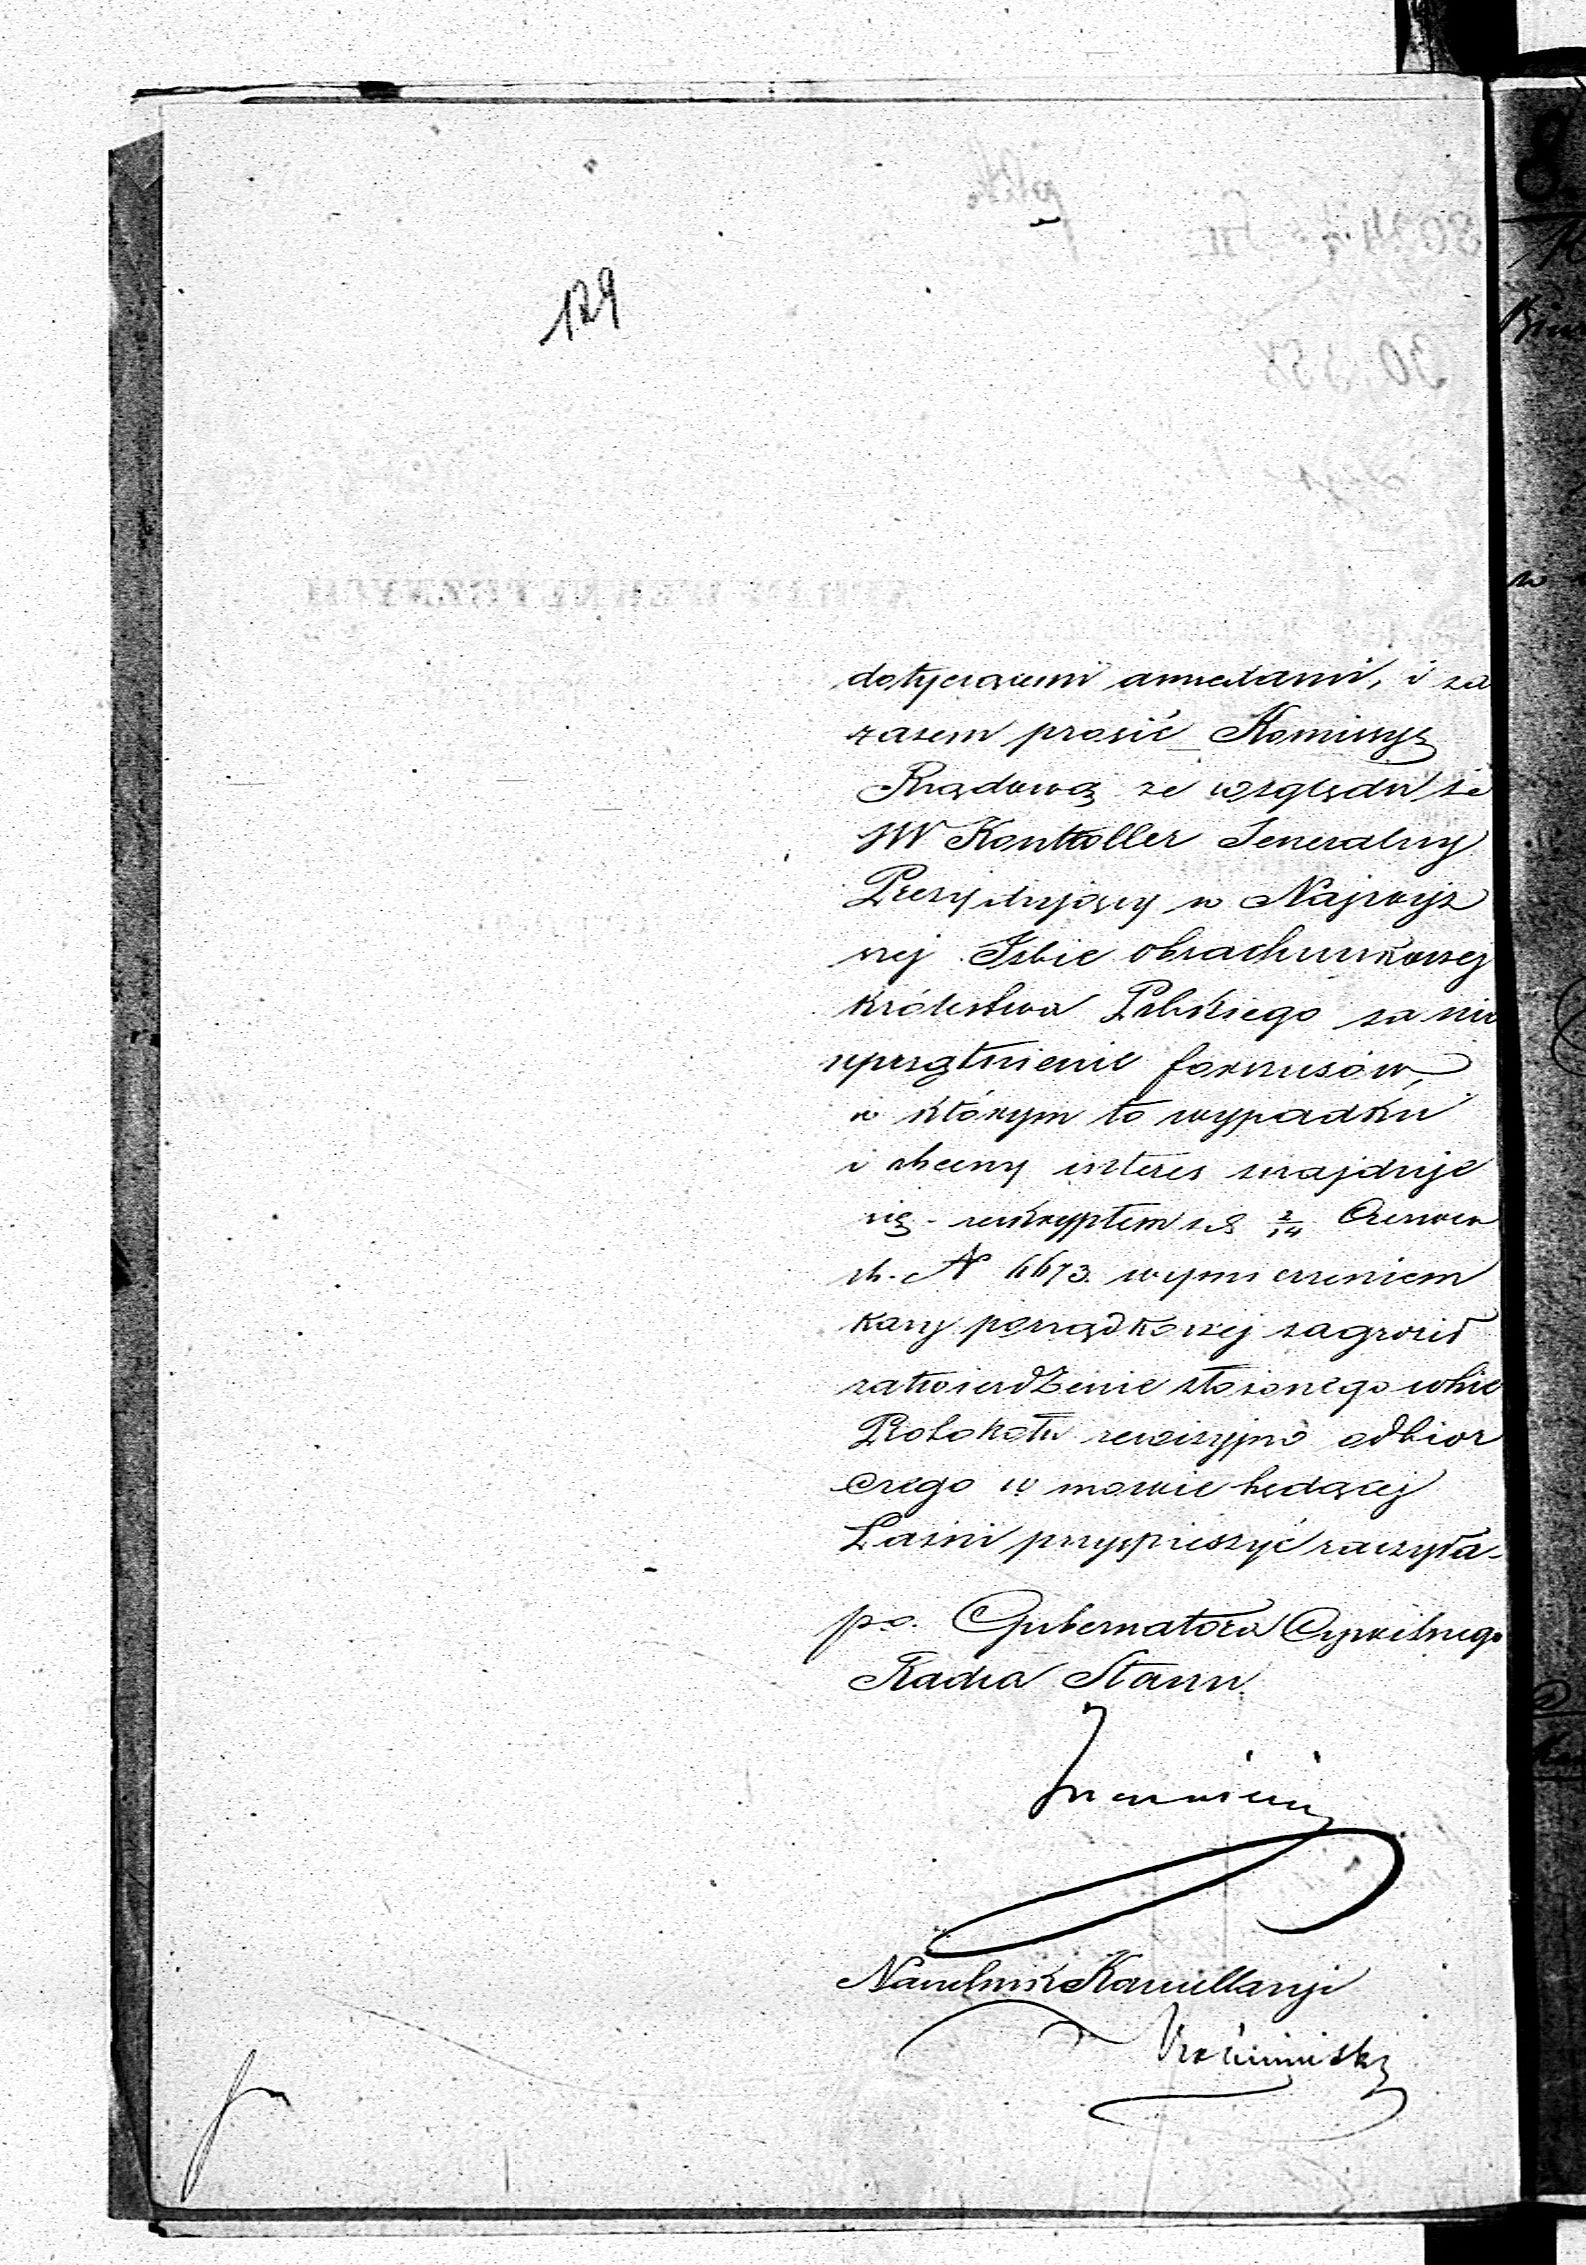 129
dotyczącemi annexami, i za
razem prosić Kommissyę
Rządową ze względu że
JW Kontroller Jeneralny
Prezydujący w Najwyż
szej Izbie obrachunkowej
Królestwa Polskiego za nie
uprzątnienie forszusów,
w którym to wypadku
i obecny interes znajduje
się - reskryptem z d 2/14 Czerwca
rb. N 6673 wymierzeniem
kary porządkowej zagroził
zatwierdzenie złożonego
Protokołu rewizyjno odbior
czego w mowie będącej
Łaźni przyspieszyć raczyła.
p.o. Gubernatora Cywilnego
Radca Stanu
Naczelnik Kancellaryi